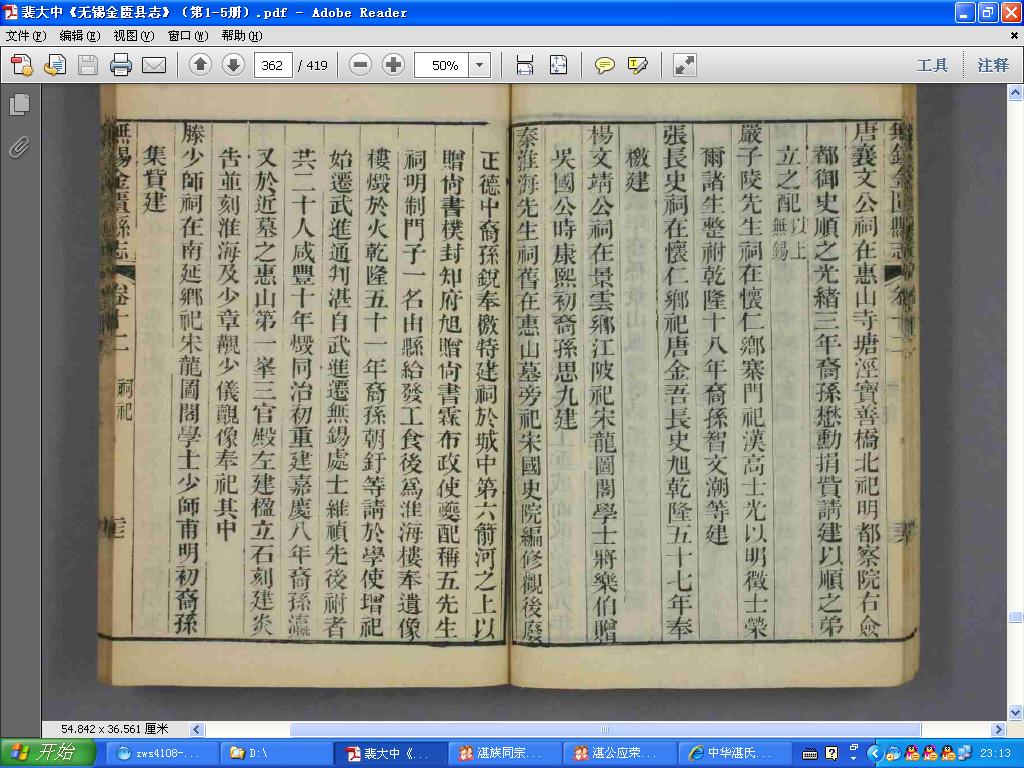 裴大中《无锡金匮县志》（第1-5册）.pdf - Adobe Reader
文件(F) 编辑(E) 视图(V) 窗口(W) 帮助(H)
362 / 419 50% 工具 注释
無錫金匱縣志 卷十二
唐襄文公祠在惠山寺塘涇寶善橋北祀明都察院右僉
都御史順之光緒三年裔孫懋勳捐貲請建以順之弟
立之配以上無錫
嚴子陵先生祠在懷仁鄉寨門祀漢高士光以明徵士榮
爾諸生整祔乾隆十八年裔孫智文潮等建
張長史祠在懷仁鄉祀唐金吾長史旭乾隆五十七年奉
檄建
楊文靖公祠在景雲鄉江陂祀宋龍圖閣學士將樂伯贈
吳國公時康熙初裔孫思九建
秦淮海先生祠舊在惠山墓旁祀宋國史院編修觀後廢
正德中裔孫銳奉檄特建祠於城中第六箭河之上以
贈尙書樸封知府旭贈尙書霖布政使夔配稱五先生
祠明制門子一名由縣給發工食後爲淮海樓奉遺像
樓燬於火乾隆五十一年裔孫朝釪等請於學使增祀
始遷武進通判湛自武進遷無錫處士維禎先後祔者
共二十人咸豐十年燬同治初重建嘉慶八年裔孫瀛
又於近墓之惠山第一峯三官殿左建楹立石刻建炎
告並刻淮海及少章覯少儀覿像奉祀其中
滕少師祠在南延鄉祀宋龍圖閣學士少師甫明初裔孫
集貲建
無錫金匱縣志 卷十二 祠祀
54.842 x 36.561 厘米
开始 zws4108-... D:\ 裴大中《... 湛族同宗... 湛公应荣... 中华湛氏... 23:13